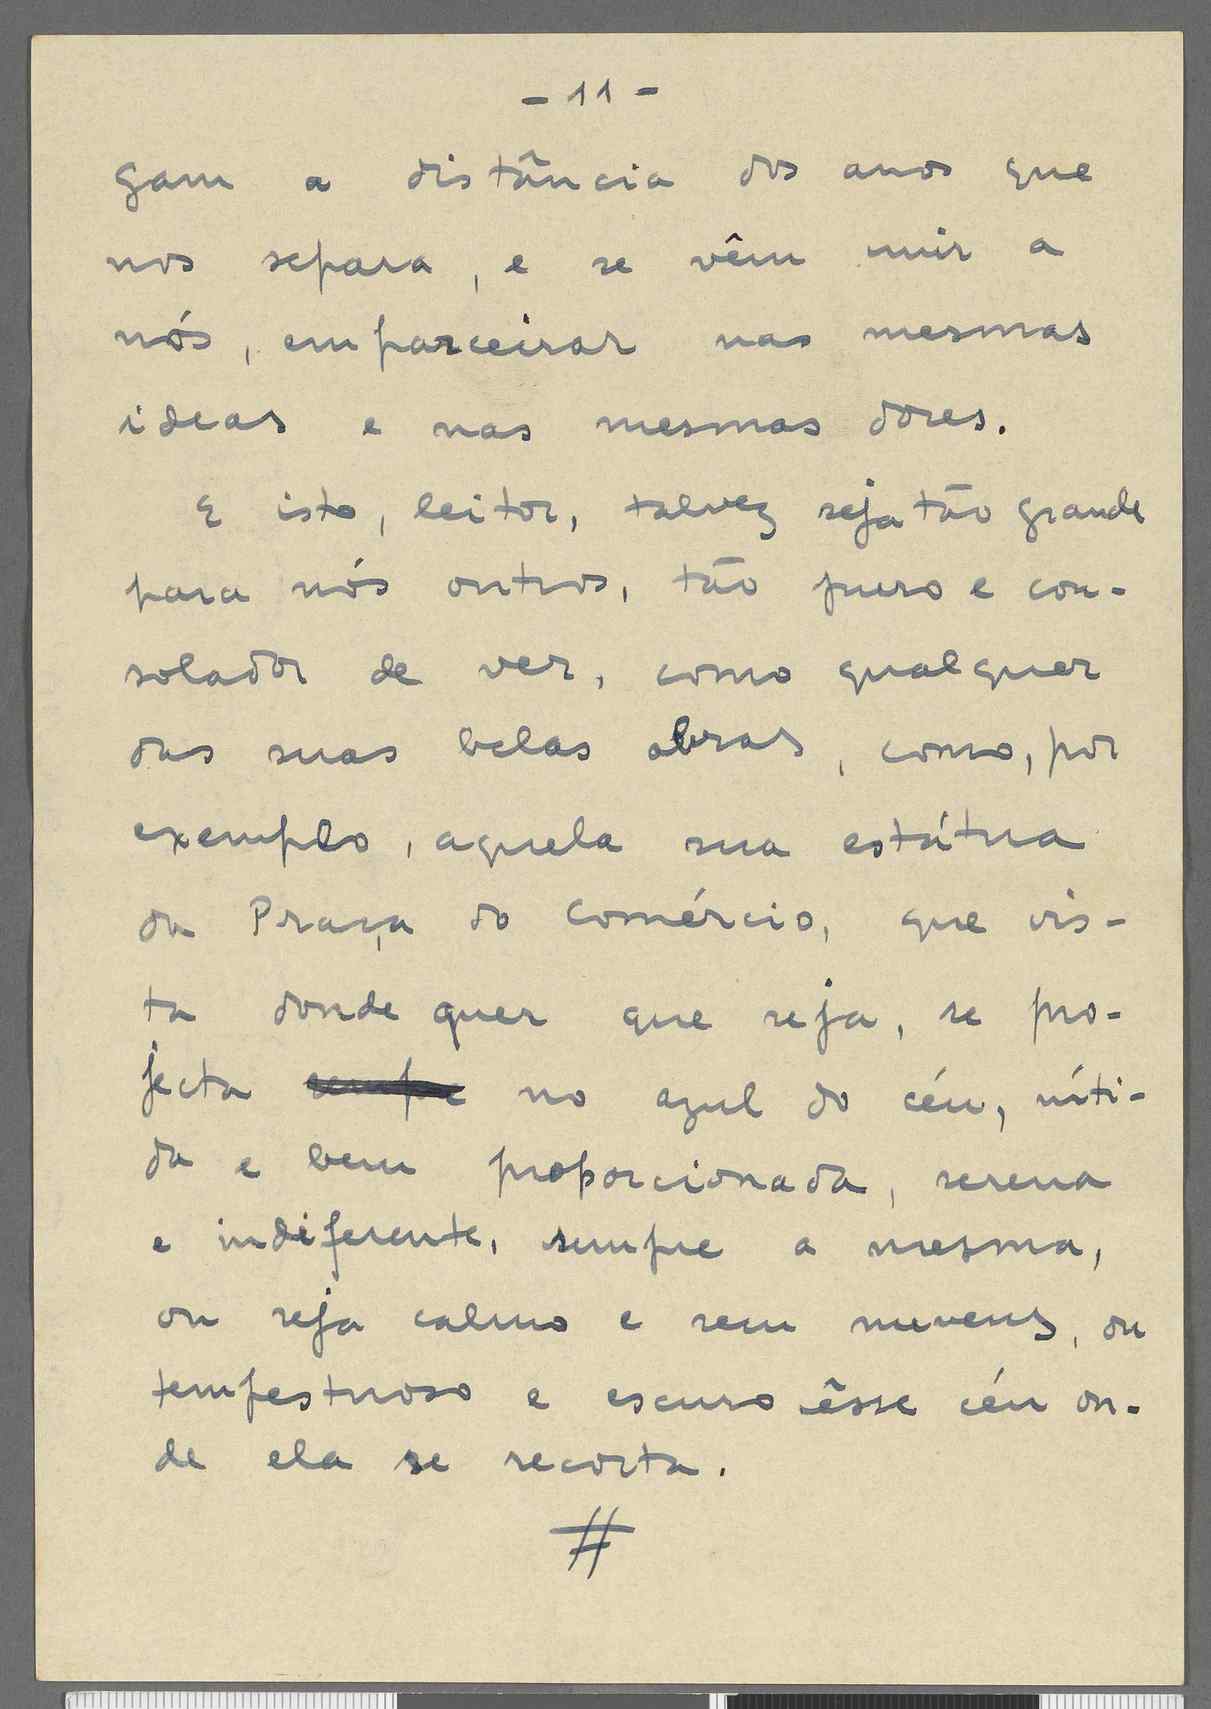 - 11 -
gam a distância dos anos que
nos separa, e se vêm unir a
nós, emparceirar nas mesmas
ideas e nas mesmas dores.
E isto, leitor, talvez seja tão grande
para nós outros, tão puro e con-
solador de ver, como qualquer
das suas belas obras, como, por
exemplo, aquela sua estátua
da Praça do Comércio, que vis-
ta donde quer que seja, se pro-
jecta sempre no azul do céu, níti-
da e bem proporcionada, serena
e indiferente, sempre a mesma,
ou seja calmo e sem nuvens, ou
tempestuoso e escuro êsse céu on-
de ela se recorta.
#